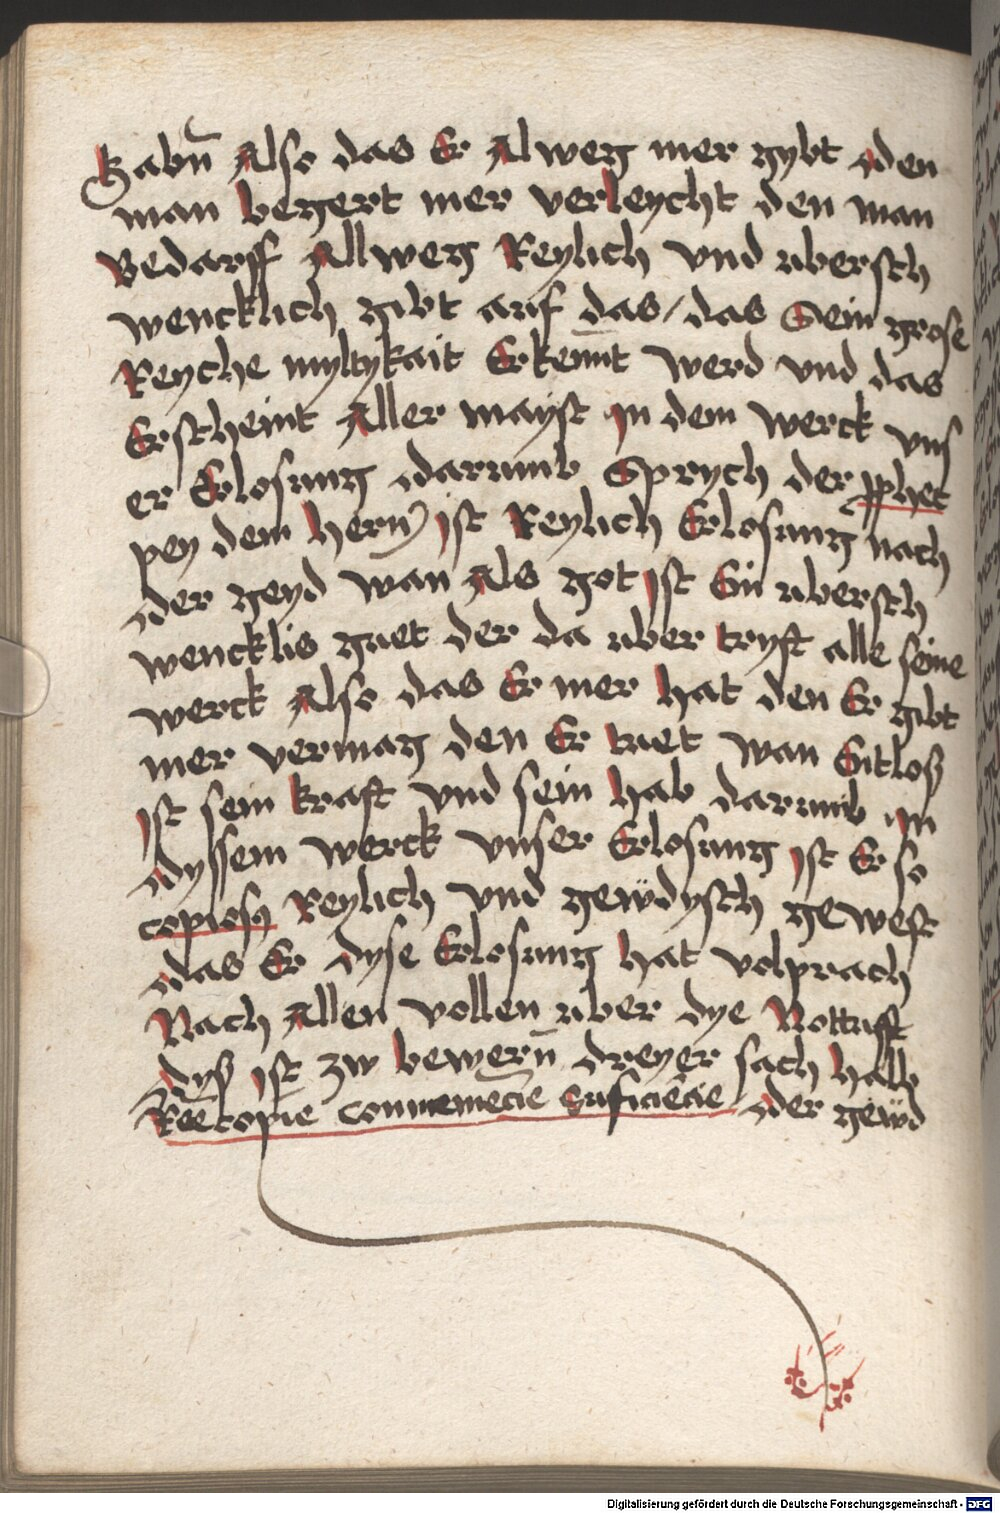 habn̄ Also das Er Alweg mer gybt den
man begert mer verleycht den man
Bedarff Allweg Reylich vnd vbersch
wencklich gibt auf das / das Sein grose
Reyche myltykait Erkennt werd vnd das
Erscheint Aller mayst In dem werck vns
er Erlosung darumb Sprych der pphet
pey dem hern̄ ist Reylich Erlosung nach
der geyd wan Als got ist Ein vbersch
wencklis guet der da vber tryft alle seine
werck Also das Er mer hat den Er gibt
mer vermag den Er tuet wan Entlos
ist sein kraft vnd sein hab darumb In
dyssem werck vnser Erlosung ist Er so
copiosꝯ Reylich vnd gewdysch gewest
das Er dyse Erlosung hat volprach
Nach Allen vollen vber dye Nottuft
dys ist zw bewern̄ dreyer sach halb
Reē copie conueniēcie suficiēcie der gewd
Digitalisierung gefördert durch die Deutsche Forschungsgemeinschaft - DFG